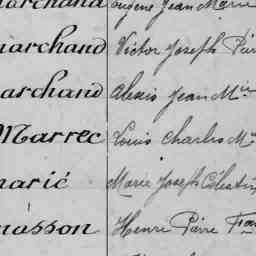 Eugène Jean Marie
marchand Victor Joseph
marchand Alexis Jean Mie
Marrec Louis Charles
marié Marie Joseph Célestin
masson Henri Pierre